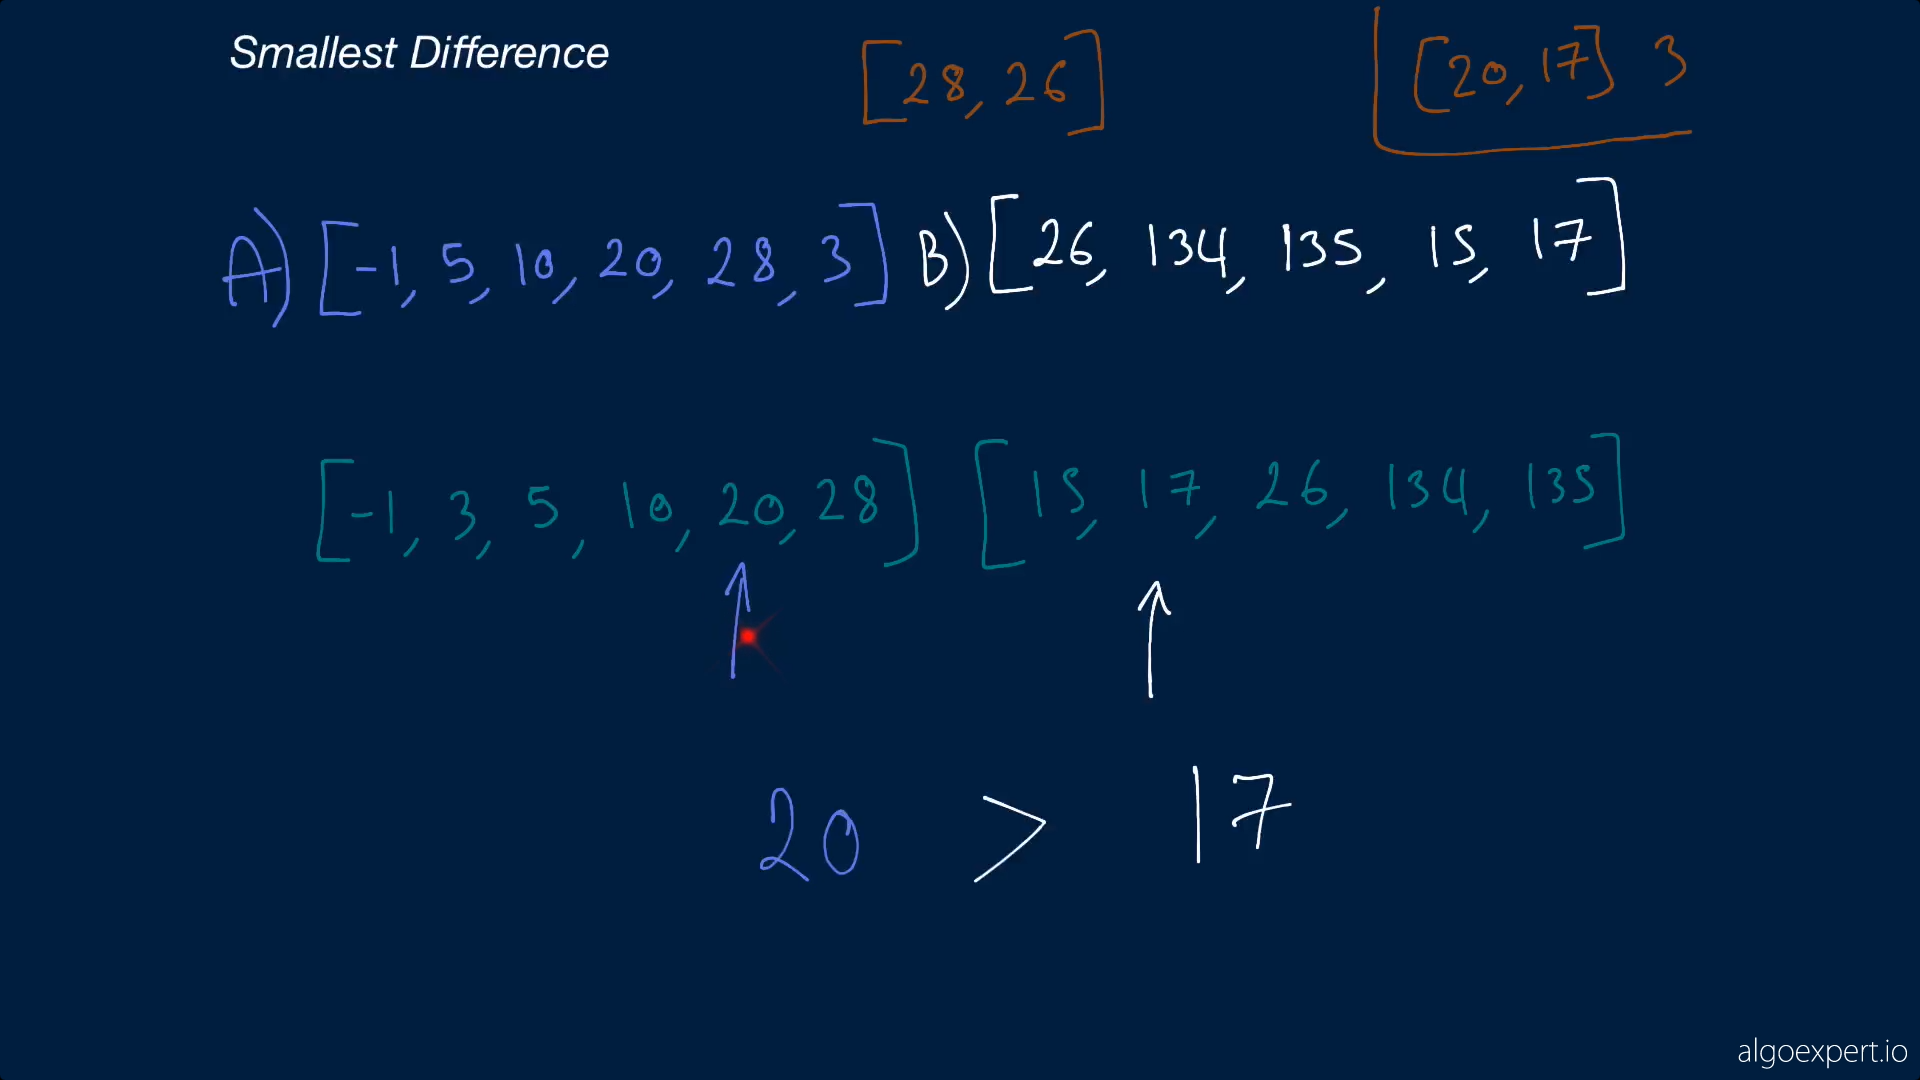 Smallest Difference
[28, 26]
[20, 17] 3
A) [-1, 5, 10, 20, 28, 3] B) [26, 134, 135, 15, 17]
[-1, 3, 5, 10, 20, 28] [15, 17, 26, 134, 135]
20 > 17
algoexpert.io